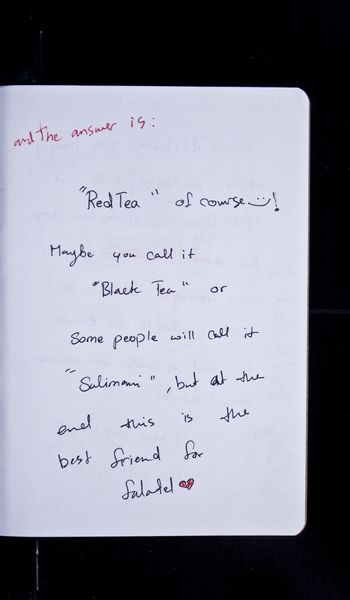 and the answer is:
"Red Tea" of course !
Maybe you call it
"Black Tea" or
Some people will call it
"Sulimani", but at the
end this is the
best friend for
falafel